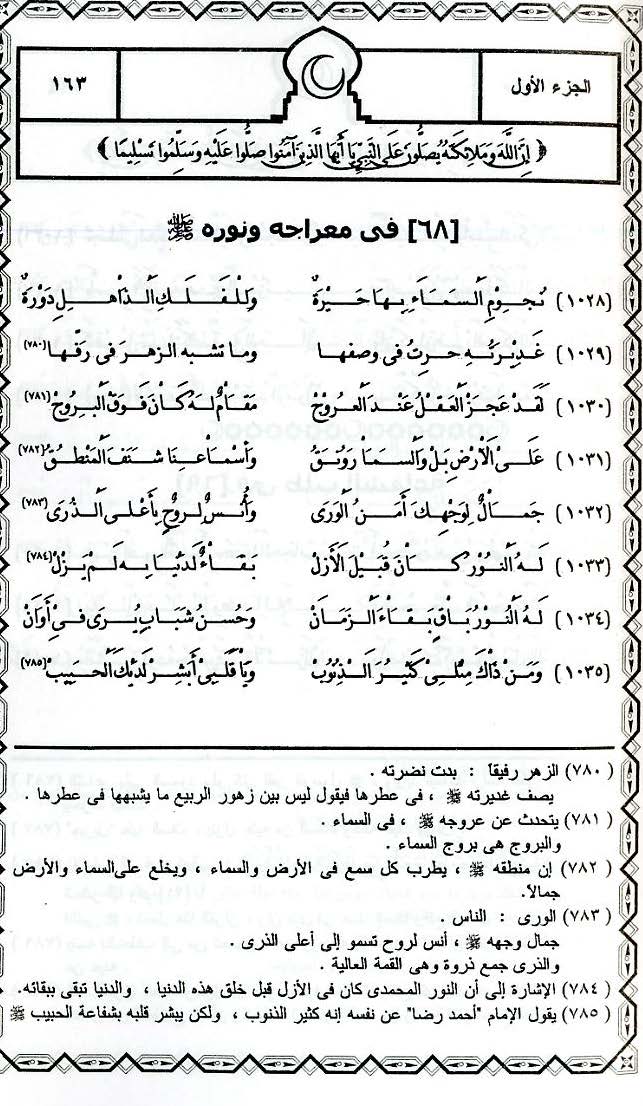 الجزء الأول
١٦٣
﴿ إِنَّ اللَّهَ وَمَلَائِكَتَهُ يُصَلُّونَ عَلَى النَّبِيِّ يَا أَيُّهَا الَّذِينَ آمَنُوا صَلُّوا عَلَيْهِ وَسَلِّمُوا تَسْلِيمًا ﴾
[٦٨] فى معراجه ونوره ﷺ
(١٠٢٨) نُجومُ السَّمَاءِ بِهَا حَيْرَةٌ وَلِلْفَلَكِ الذَّاهِلِ دَوْرَةٌ
(١٠٢٩) غَدِيرَتِهِ حرتُ فى وصفها وما تشبه الزهرَ فى رفّها (٧٨٠)
(١٠٣٠) لَقَدْ عَجزَ العَقْلُ عِنْدَ العُروجْ مَقَامٌ لهُ كَانَ فَوْقَ البُروجْ (٧٨١)
(١٠٣١) عَلَى الأَرْضِ بَلْ وَالسَّمَا رَوْنَقُ وَأَسْمَاعنا شَنَفَ المَنْطقُ (٧٨٢)
(١٠٣٢) جَمَالٌ لِوَجْهِكَ أَمَنُ الوَرى وَأُنْسٌ لِروحٍ بِأَعْلَى الذُّرَى (٧٨٣)
(١٠٣٣) لَهُ النُّورُ كَانَ قُبَيْلَ الأَزَلْ بَقَاءٌ لدُنْيَا بِهِ لَمْ يَزَلْ (٧٨٤)
(١٠٣٤) لَهُ النُّورُ بَاقٍ بَقَاءَ الزَّمَانْ وَحُسْنُ شَبَابٍ يُرَى فى أَوَانْ
(١٠٣٥) وَمَنْ ذَاكَ مِثْلِى كَثيرُ الذُّنُوبْ وَيَا قَلْبِى أَبْشِرْ لَدَيْكَ الحَبِيبْ (٧٨٥)
(٧٨٠) الزهر رفيقاً : بدت نضرته .
يصف غديرته ﷺ ، فى عطرها فيقول ليس بين زهور الربيع ما يشبهها فى عطرها .
(٧٨١) يتحدث عن عروجه ﷺ ، فى السماء .
والبروج هى بروج السماء .
(٧٨٢) إن منطقه ﷺ ، يطرب كل سمع فى الأرض والسماء ، ويخلع على السماء والأرض
جمالاً.
(٧٨٣) الورى : الناس .
جمال وجهه ﷺ ، أنس لروح تسمو إلى أعلى الذرى .
والذرى جمع ذروة وهى القمة العالية .
(٧٨٤) الإشارة إلى أن النور المحمدى كان فى الأزل قبل خلق هذه الدنيا ، والدنيا تبقى ببقائه.
(٧٨٥) يقول الإمام "أحمد رضا" عن نفسه إنه كثير الذنوب ، ولكن يبشر قلبه بشفاعة الحبيب ﷺ